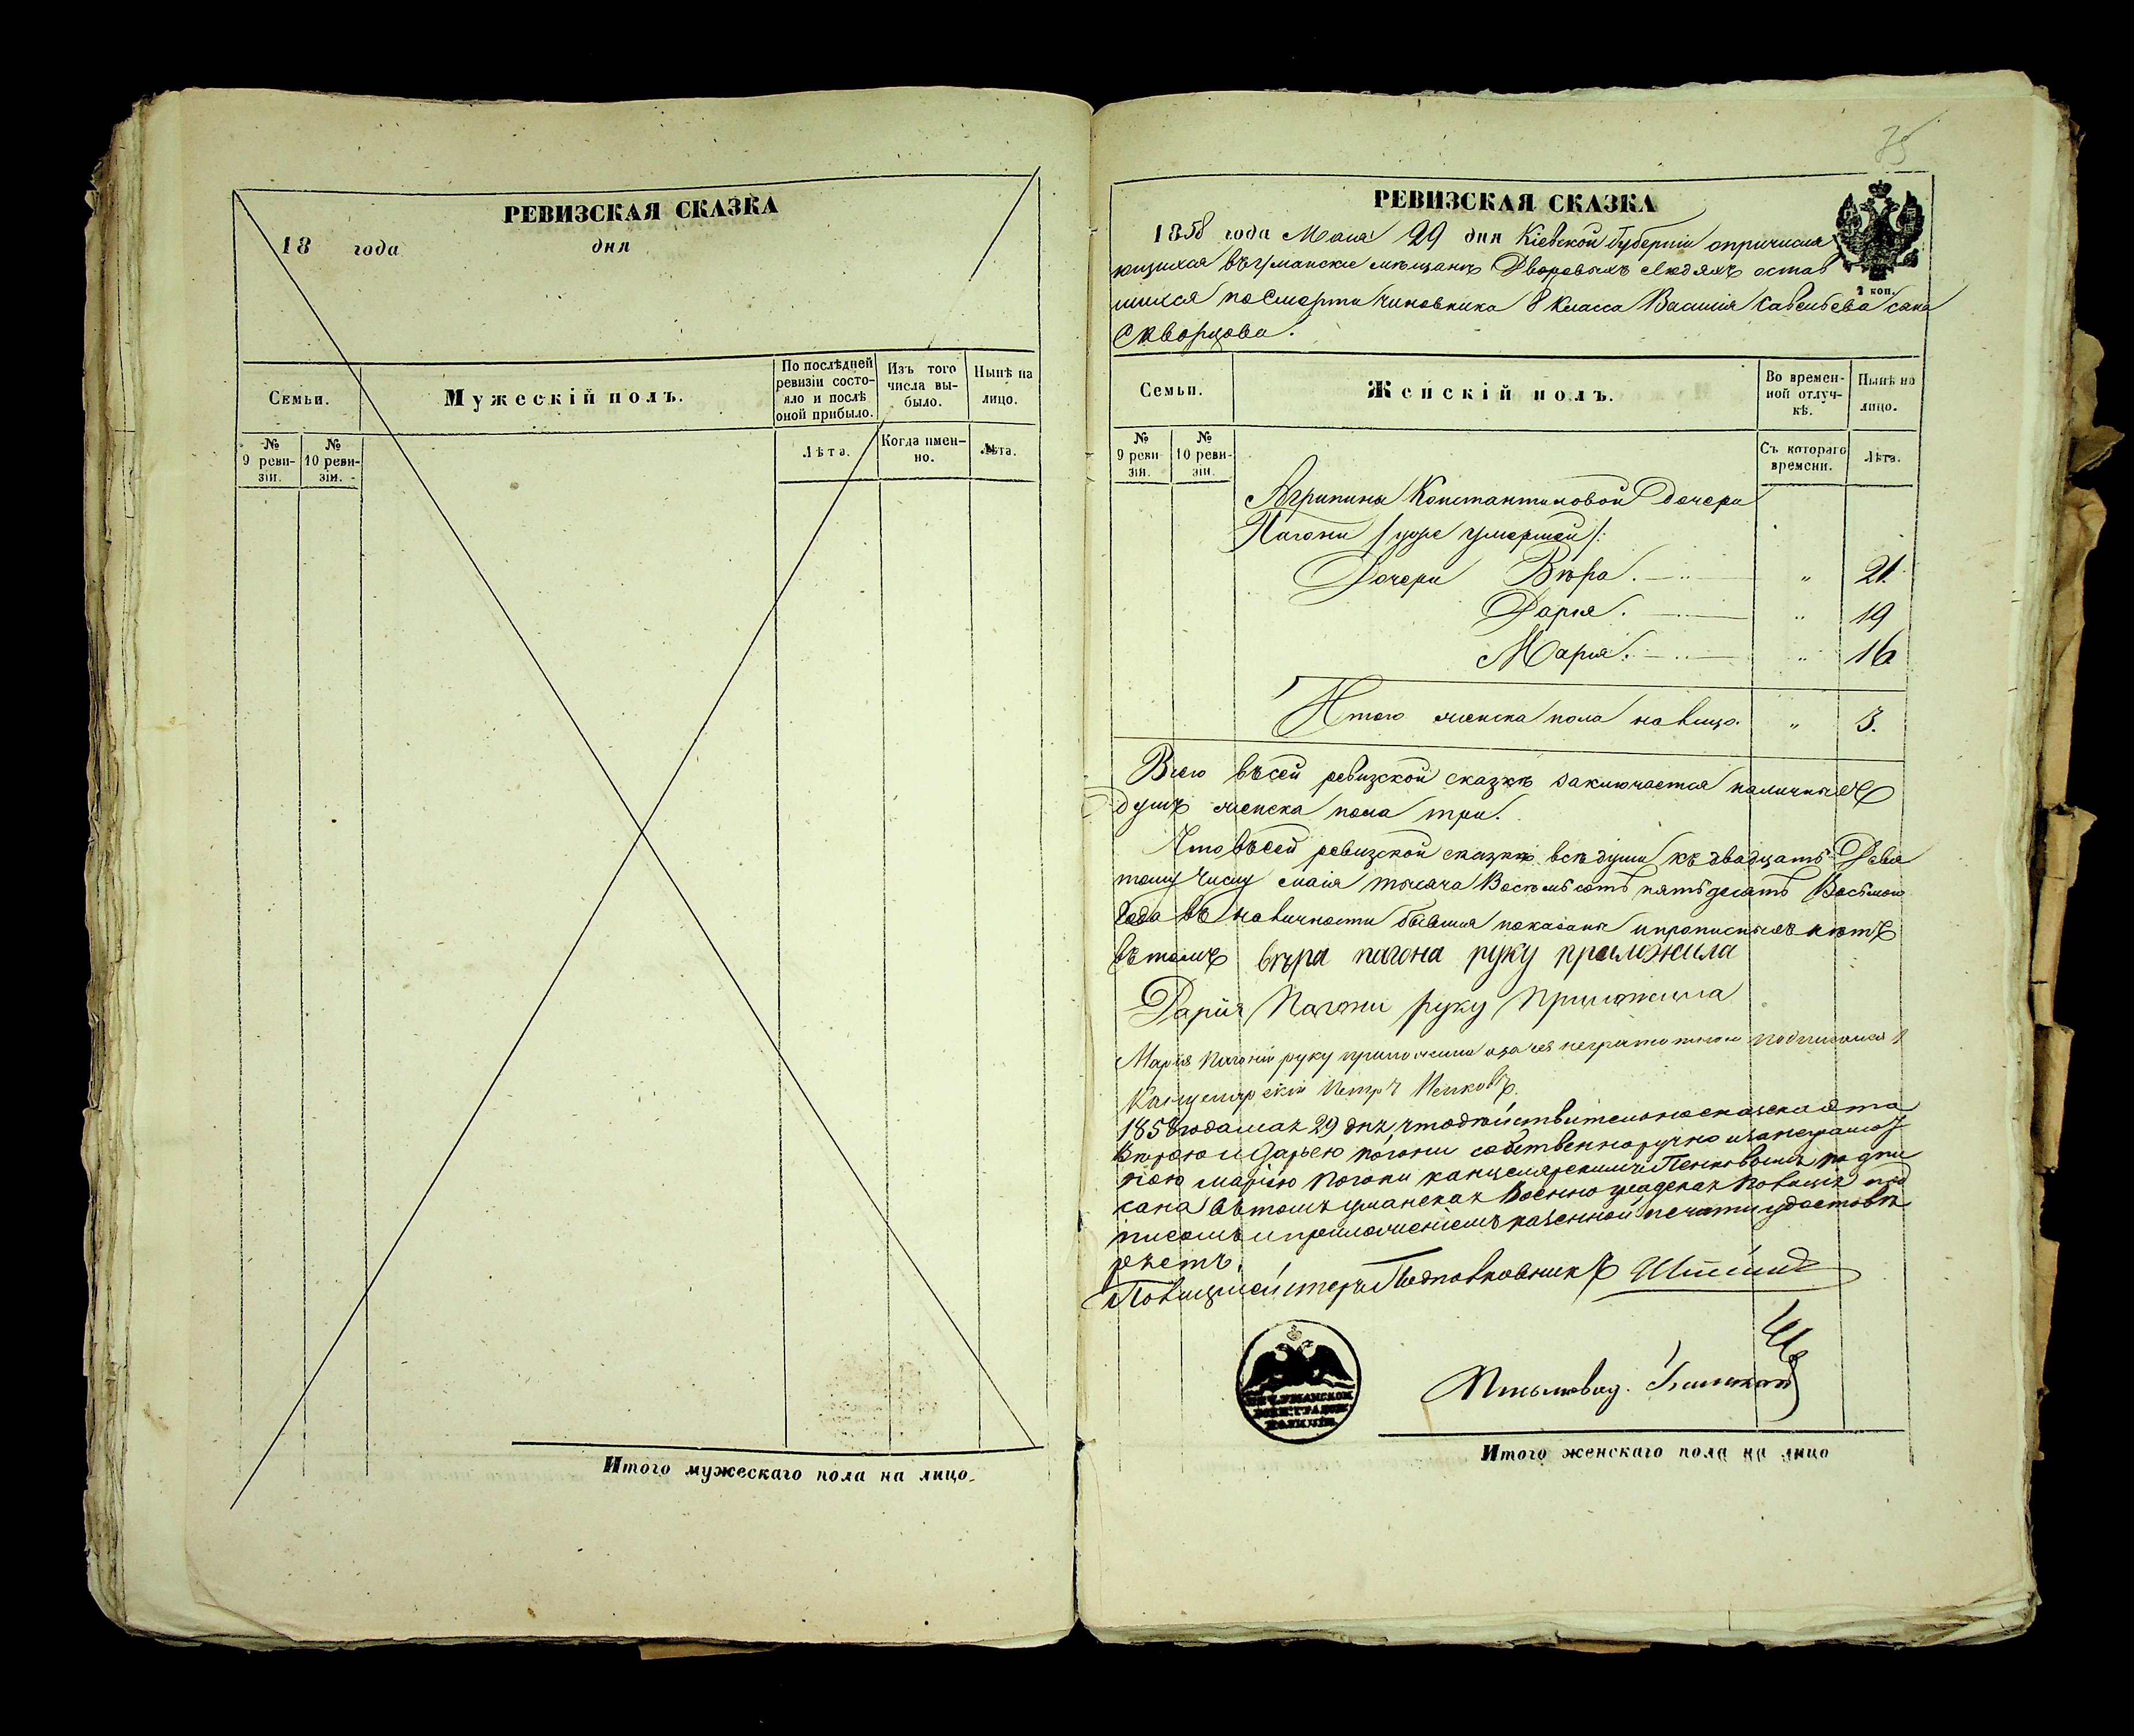 РЕВИЗСКАЯ СКАЗКА
18 года дня
Семьи.
Мужескій полъ.
По послѣдней ревизіи состо-
яло и послѣ оной прибыло.
Изъ того числа вы-
было.
Нынѣ на лицо.
№ 9 реви-
зіи.
№ 10 реви-
зіи.
Лѣта.
Когда имен-
но.
Лѣта.
Итого мужескаго пола на лицо.
35
РЕВИЗСКАЯ СКАЗКА
1858 года Маія 29 дня Кіевской Губерніи опричисля
ющихся въ Уманскіе мѣщане Дворовыхъ Людяхъ остав
шихся по смерти Чиновника 8 Класса Василія Савельева сына
Скворцова.
2 коп.
Семьи.
Женскій полъ.
Во времен-
ной отлуч-
кѣ.
Нынѣ на лицо.
№ 9 реви-
зіи.
№ 10 реви-
зіи.
Съ котораго времени.
Лѣта.
Агрипины Константиновой дочери
Пагони /уже умершей/:
Дочери Вѣра. " 21.
Дарія. " 19
Марія. " 16
Итого женска пола налицо. " 3.
Всего въ сей ревизской сказкѣ заключается наличныхъ
душъ женска пола три.
Что въ сей ревизской сказкѣ всѣ души къ двадцать Девя
тому Числу маія тысяча Восемь сотъ пятьдесятъ Восьмого
Года въ наличности бывшія показаны и прописныхъ нѣтъ
въ томъ вѣра пагона руку приложила
Дарія Пагони руку приложила
Марія Пагони руку приложила а за нея неграмотною подписался
Канцелярскій Петръ Пенковъ
1858 года мая 29 дня что действительно сказка эта
Вѣрою и Дарьею погони собственноручно и за неграмот
ною Маріею Погони канцелярскимъ Пенковымъ подпи
сана въ томъ уманская Военно градская Полиція под
писомъ и приложеніемъ казенной печати удостовѣ
ряетъ.
Полицмейстеръ Подполковникъ
Письмовод.
Итого женскаго пола на лицо